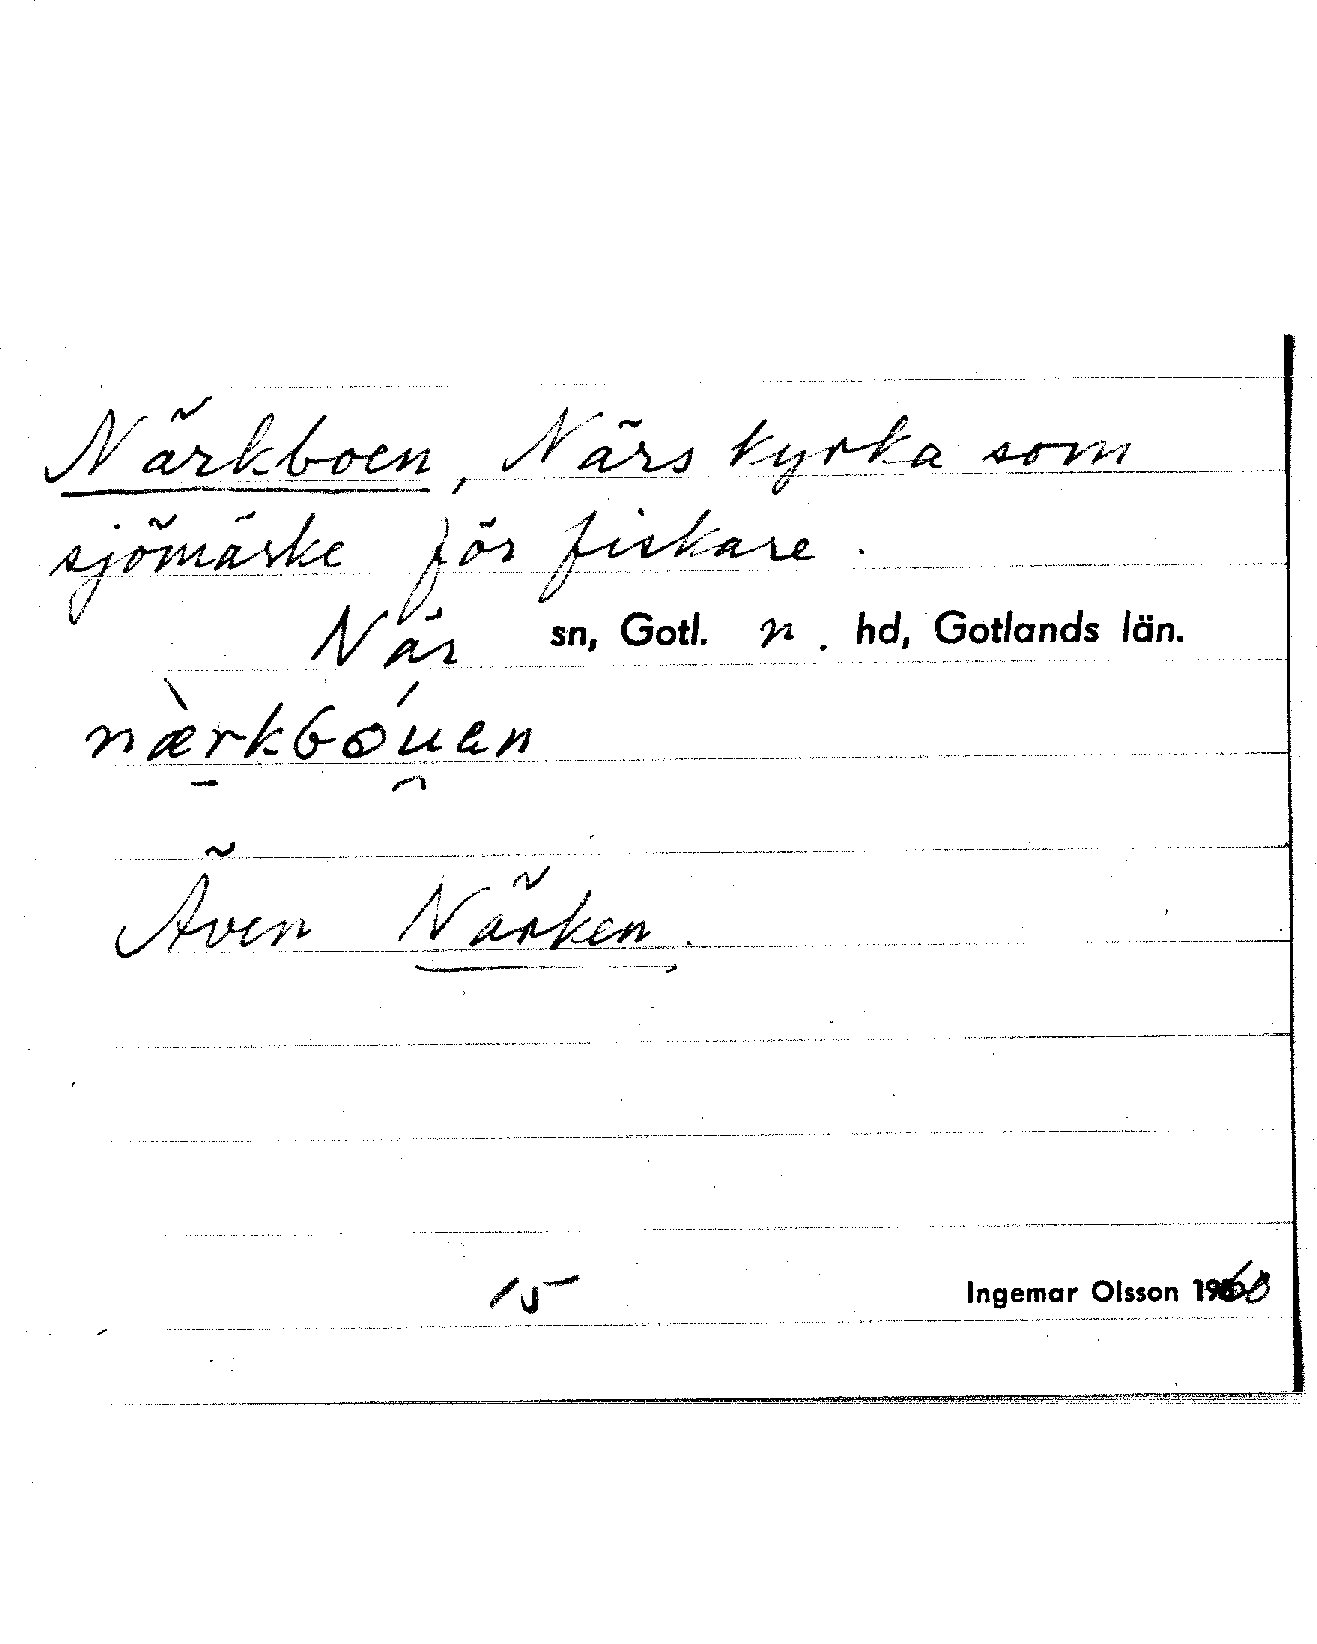 Närkboen, Närs kyrka som
sjömärke för fiskare.
När sn, Gotl. n. hd, Gotlands län.
næ̀rkbóu̯en
Även Närken.
15 Ingemar Olsson 1960